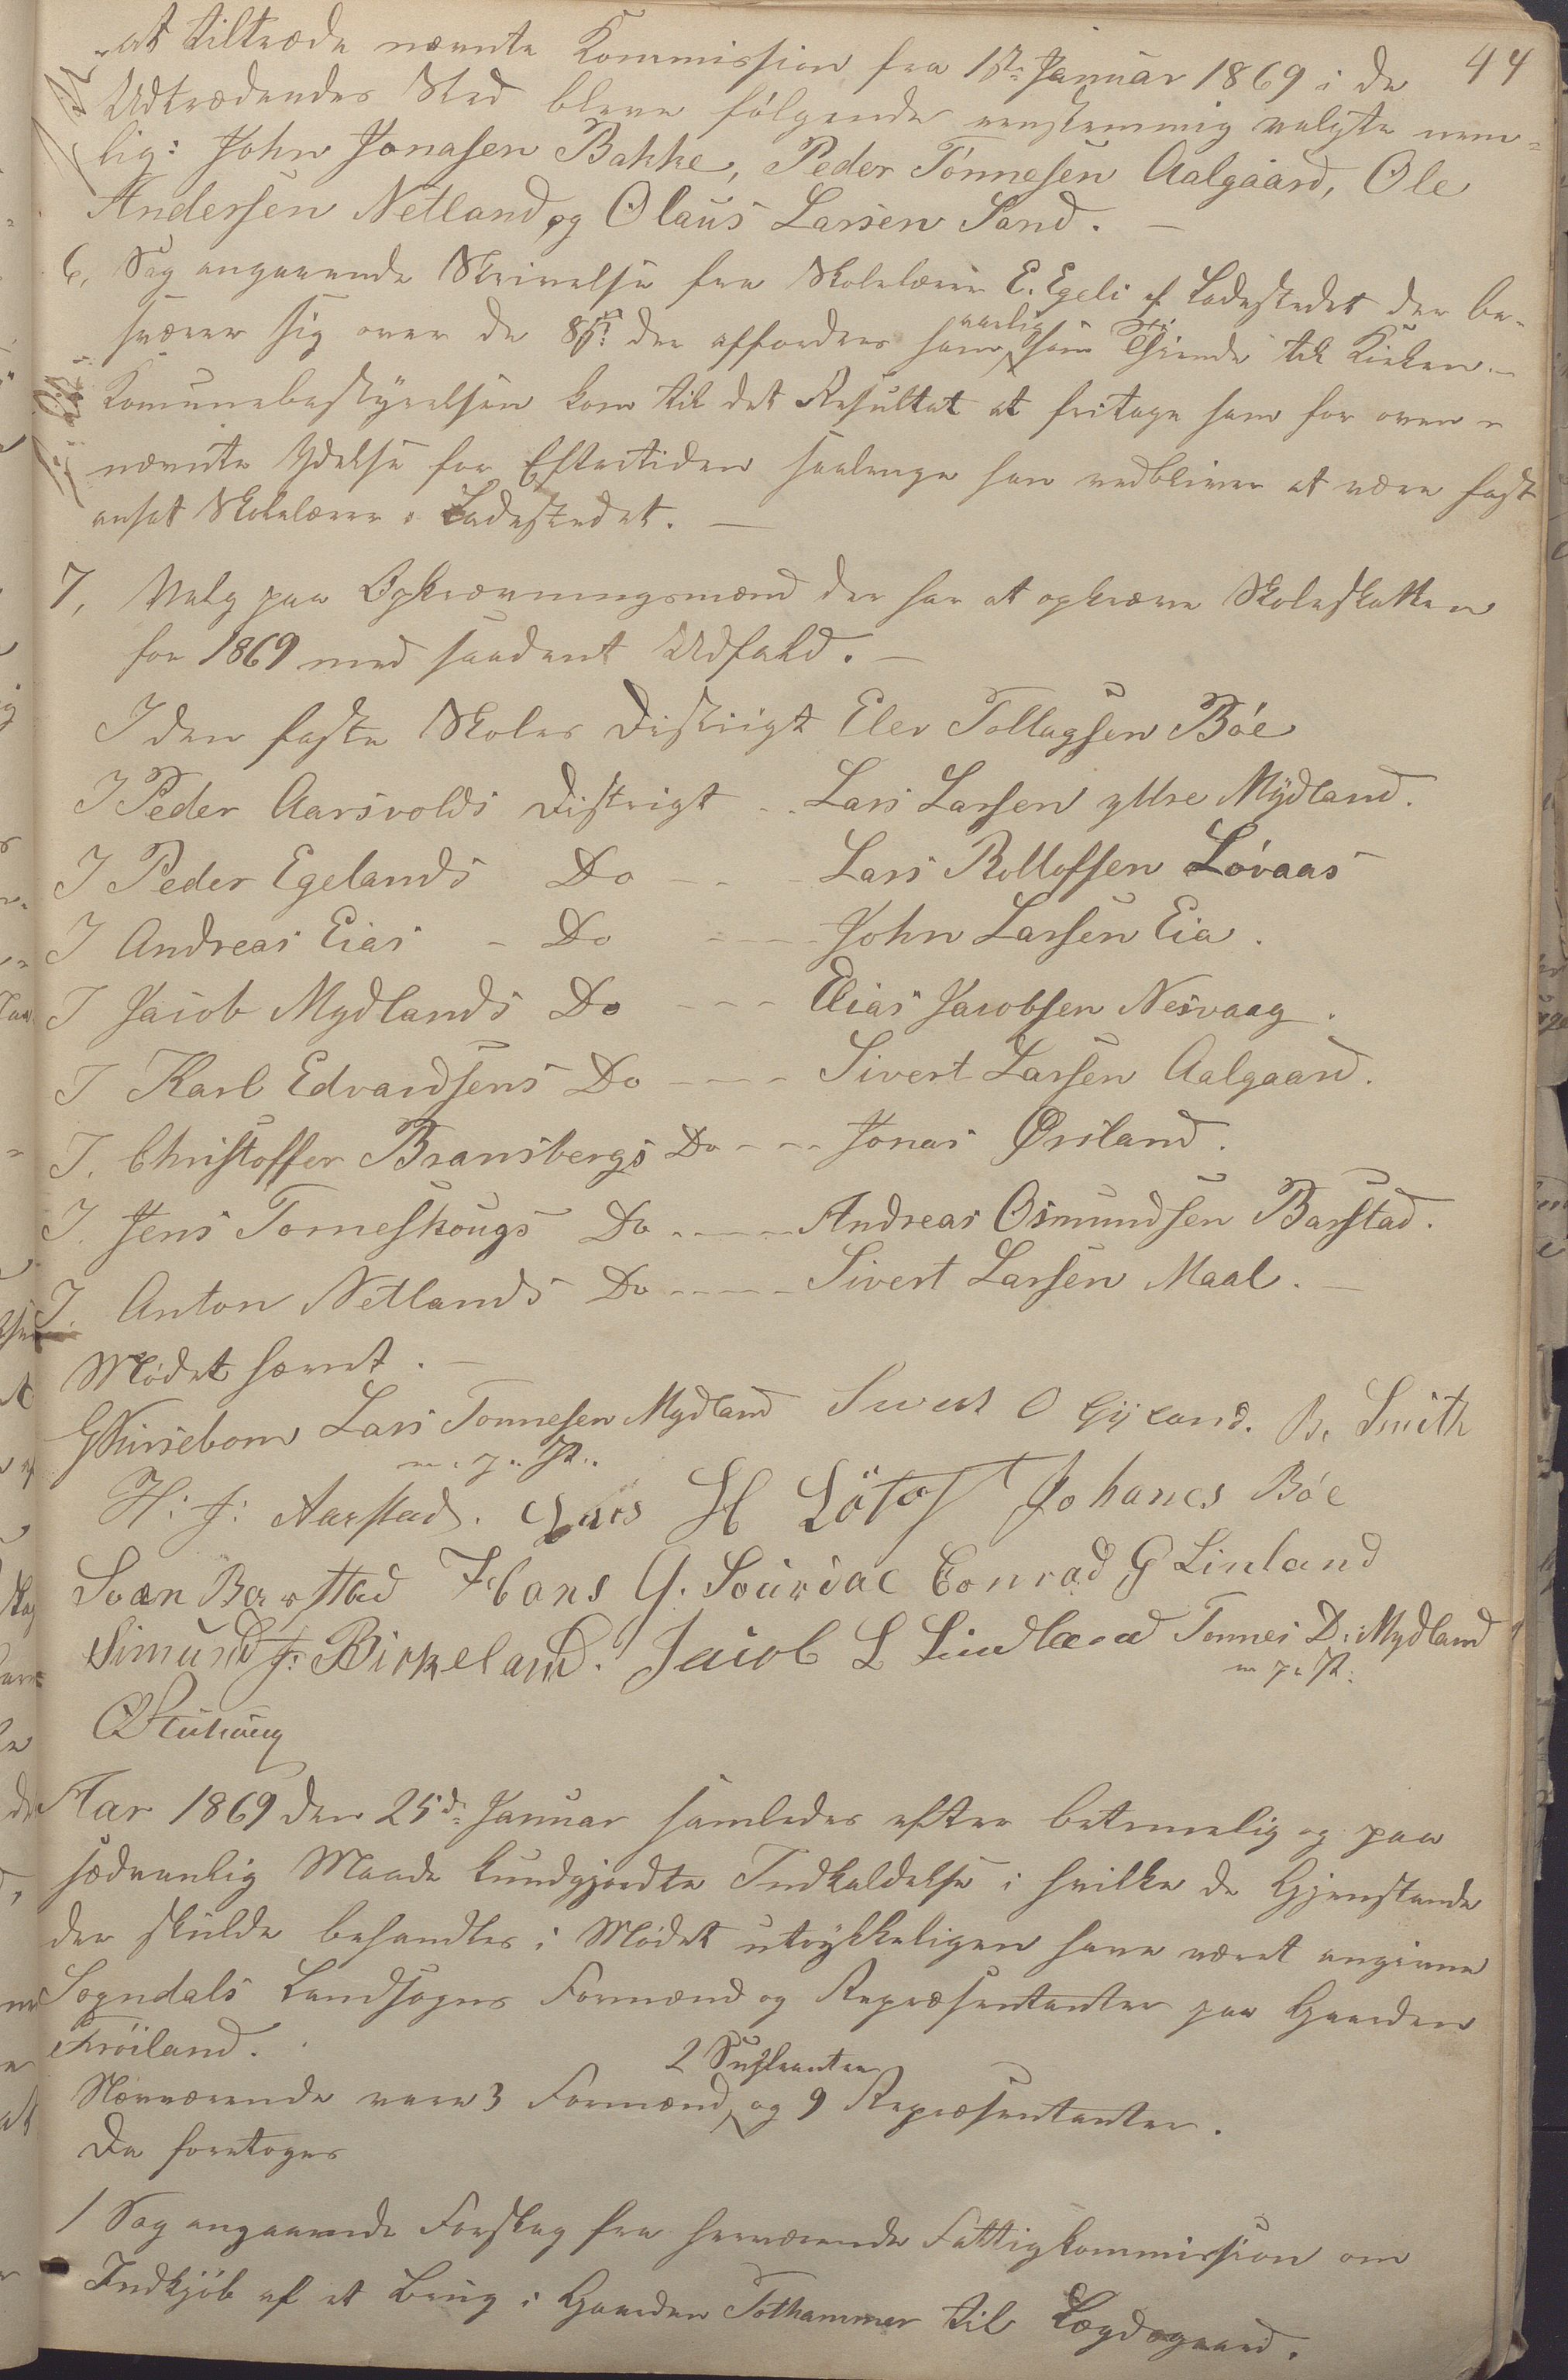 44
at tiltræde nævnte Kommission fra 1ste Januar 1869 i de
Udtrædendes Sted bleve følgende eenstemmig valgte nem-
lig: John Jonasen Bakke, Peder Tönnesen Aalgaard, Ole
Andersen Netland og Olaus Larsen Sand. —
6, Sag angaaende Skrivelse fra Skolelærer E. Egeli af Ladestedet der be-
sværer sig over de 8 der affordres ham aarlig som Tiende til Kirken. —
Komunebestyrelsen kom til det Resultat at fritage ham for oven-
nævnte Ydelse for Eftertiden saalenge han vedbliver at være fast
ansat Skolelærer i Ladestedet. —
7, Valg paa Opkrævningsmænd der har at opkræve Skoleskatten
for 1869 med saadant Udfald. —
I den faste Skoles Distrigt Elev Tollagsen Böe
I Peder Aarsvolds Distrigt - Lars Larsen yttre Mydland.
I Peder Egelands Do - - Lars Rolloffsen Lövaas
I Andreas Eias - Do - - - John Larsen Eia.
I Jacob Mydlands Do - - - Elias Jacobsen Nesvaag.
I Karl Edvardsens Do - - - Sivert Larsen Aalgaard.
I. Christoffer Bransbergs Do - - - Jonas Örsland.
I. Jens Tomeskougs Do - - - - Andreas Osmundsen Barstad.
I. Anton Netlands Do - - - - Sivert Larsen Maal. —
Mödet hævet. —
G Kirsebom Lars Tonnesen Mydland Sivert O Gyland. B. Smith
m. p. P..
H: J: Aarstad. Lars H Lötoft Johanes Böe
Svæn Barstad Hans G. Sourdal Conrad G Linland
Simund J: Birkeland. Jacob L Lindland Tonnes D. Mydland
m. p. P.
Aar 1869 den 25de Januar samledes efter betimelig og paa
sædvanlig Maade kundgjordte Indkaldelse i hvilke de Gjenstande
der skulde behandles i Mödet utrykkeligen have været angivne
Sogndals Landsogns Formænd og Repræsentanter paa Gaarden
Fröiland.
Nærværende vare 3 Formænd, 2 Supleanter og 9 Repræsentanter.
Da foretoges
1 Sag angaaende Forslag fra herværende Fattigkommission om
Indkjöb af et Brug i Gaarden Tothammer til Lægdsgaard.